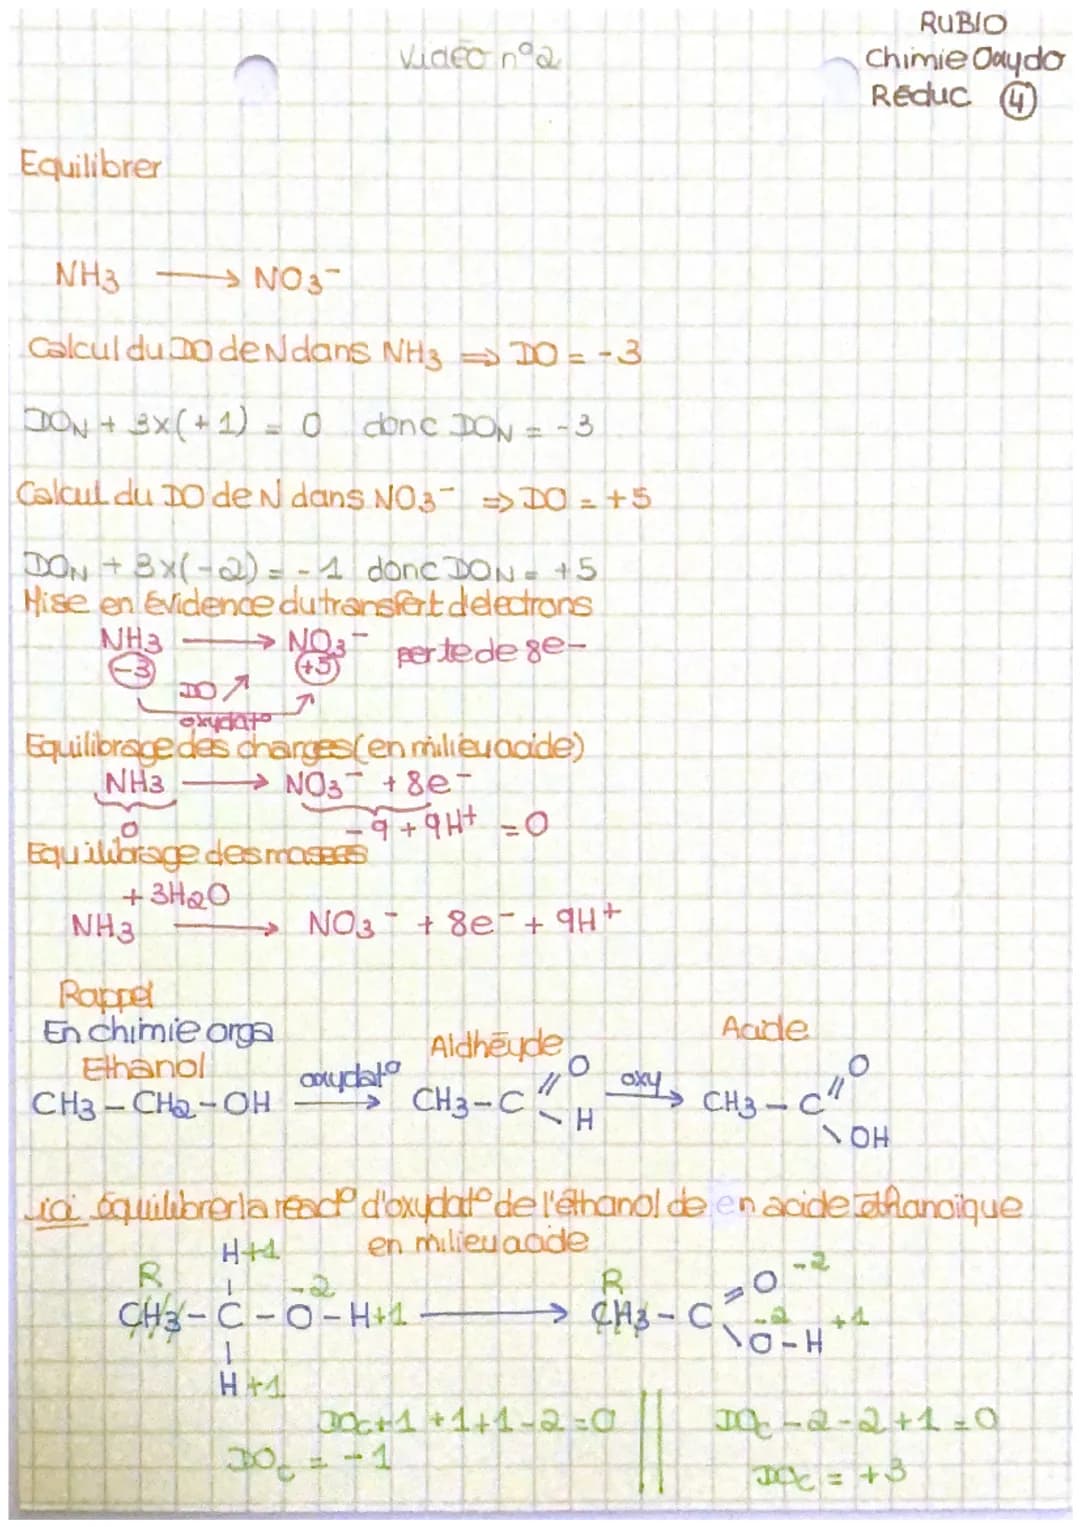 RUBIO
Vidéo n°2
Chimie Oxydo
Réduc 4
Equilibrer
NH3 → NO3-
Calcul du DO de N dans NH3 => DO = -3
DON + 3x(+1) = 0 donc DON = -3
Calcul du DO de N dans NO3- => DO = +5
DON + 3x(-2) = -1 donc DON = +5
Mise en évidence du transfert d'electrons
NH3 → NO3- perte de 8e-
-3 +5
DO ↗
oxydat°
Equilibrage des charges (en milieu acide)
NH3 → NO3- + 8e-
0 -9 + 9H+ = 0
Equilibrage des masses
+ 3H2O
NH3 → NO3- + 8e- + 9H+
Rappel
En chimie orga
Ethanol Aldhéyde Acide
CH3 - CH2 - OH oxydat° → CH3 - C // O \ H oxy → CH3 - C // O \ OH
ici équilibrer la react° d'oxydat° de l'éthanol de en acide éthanoïque
en milieu acide
H+1
R -2 R O -2
CH3 - C - O - H+1 → CH3 - C -2 +1
O - H
H +1
DOc +1 +1 +1 -2 = 0 || DOc -2 -2 +1 = 0
DOc = -1 DOc = +3